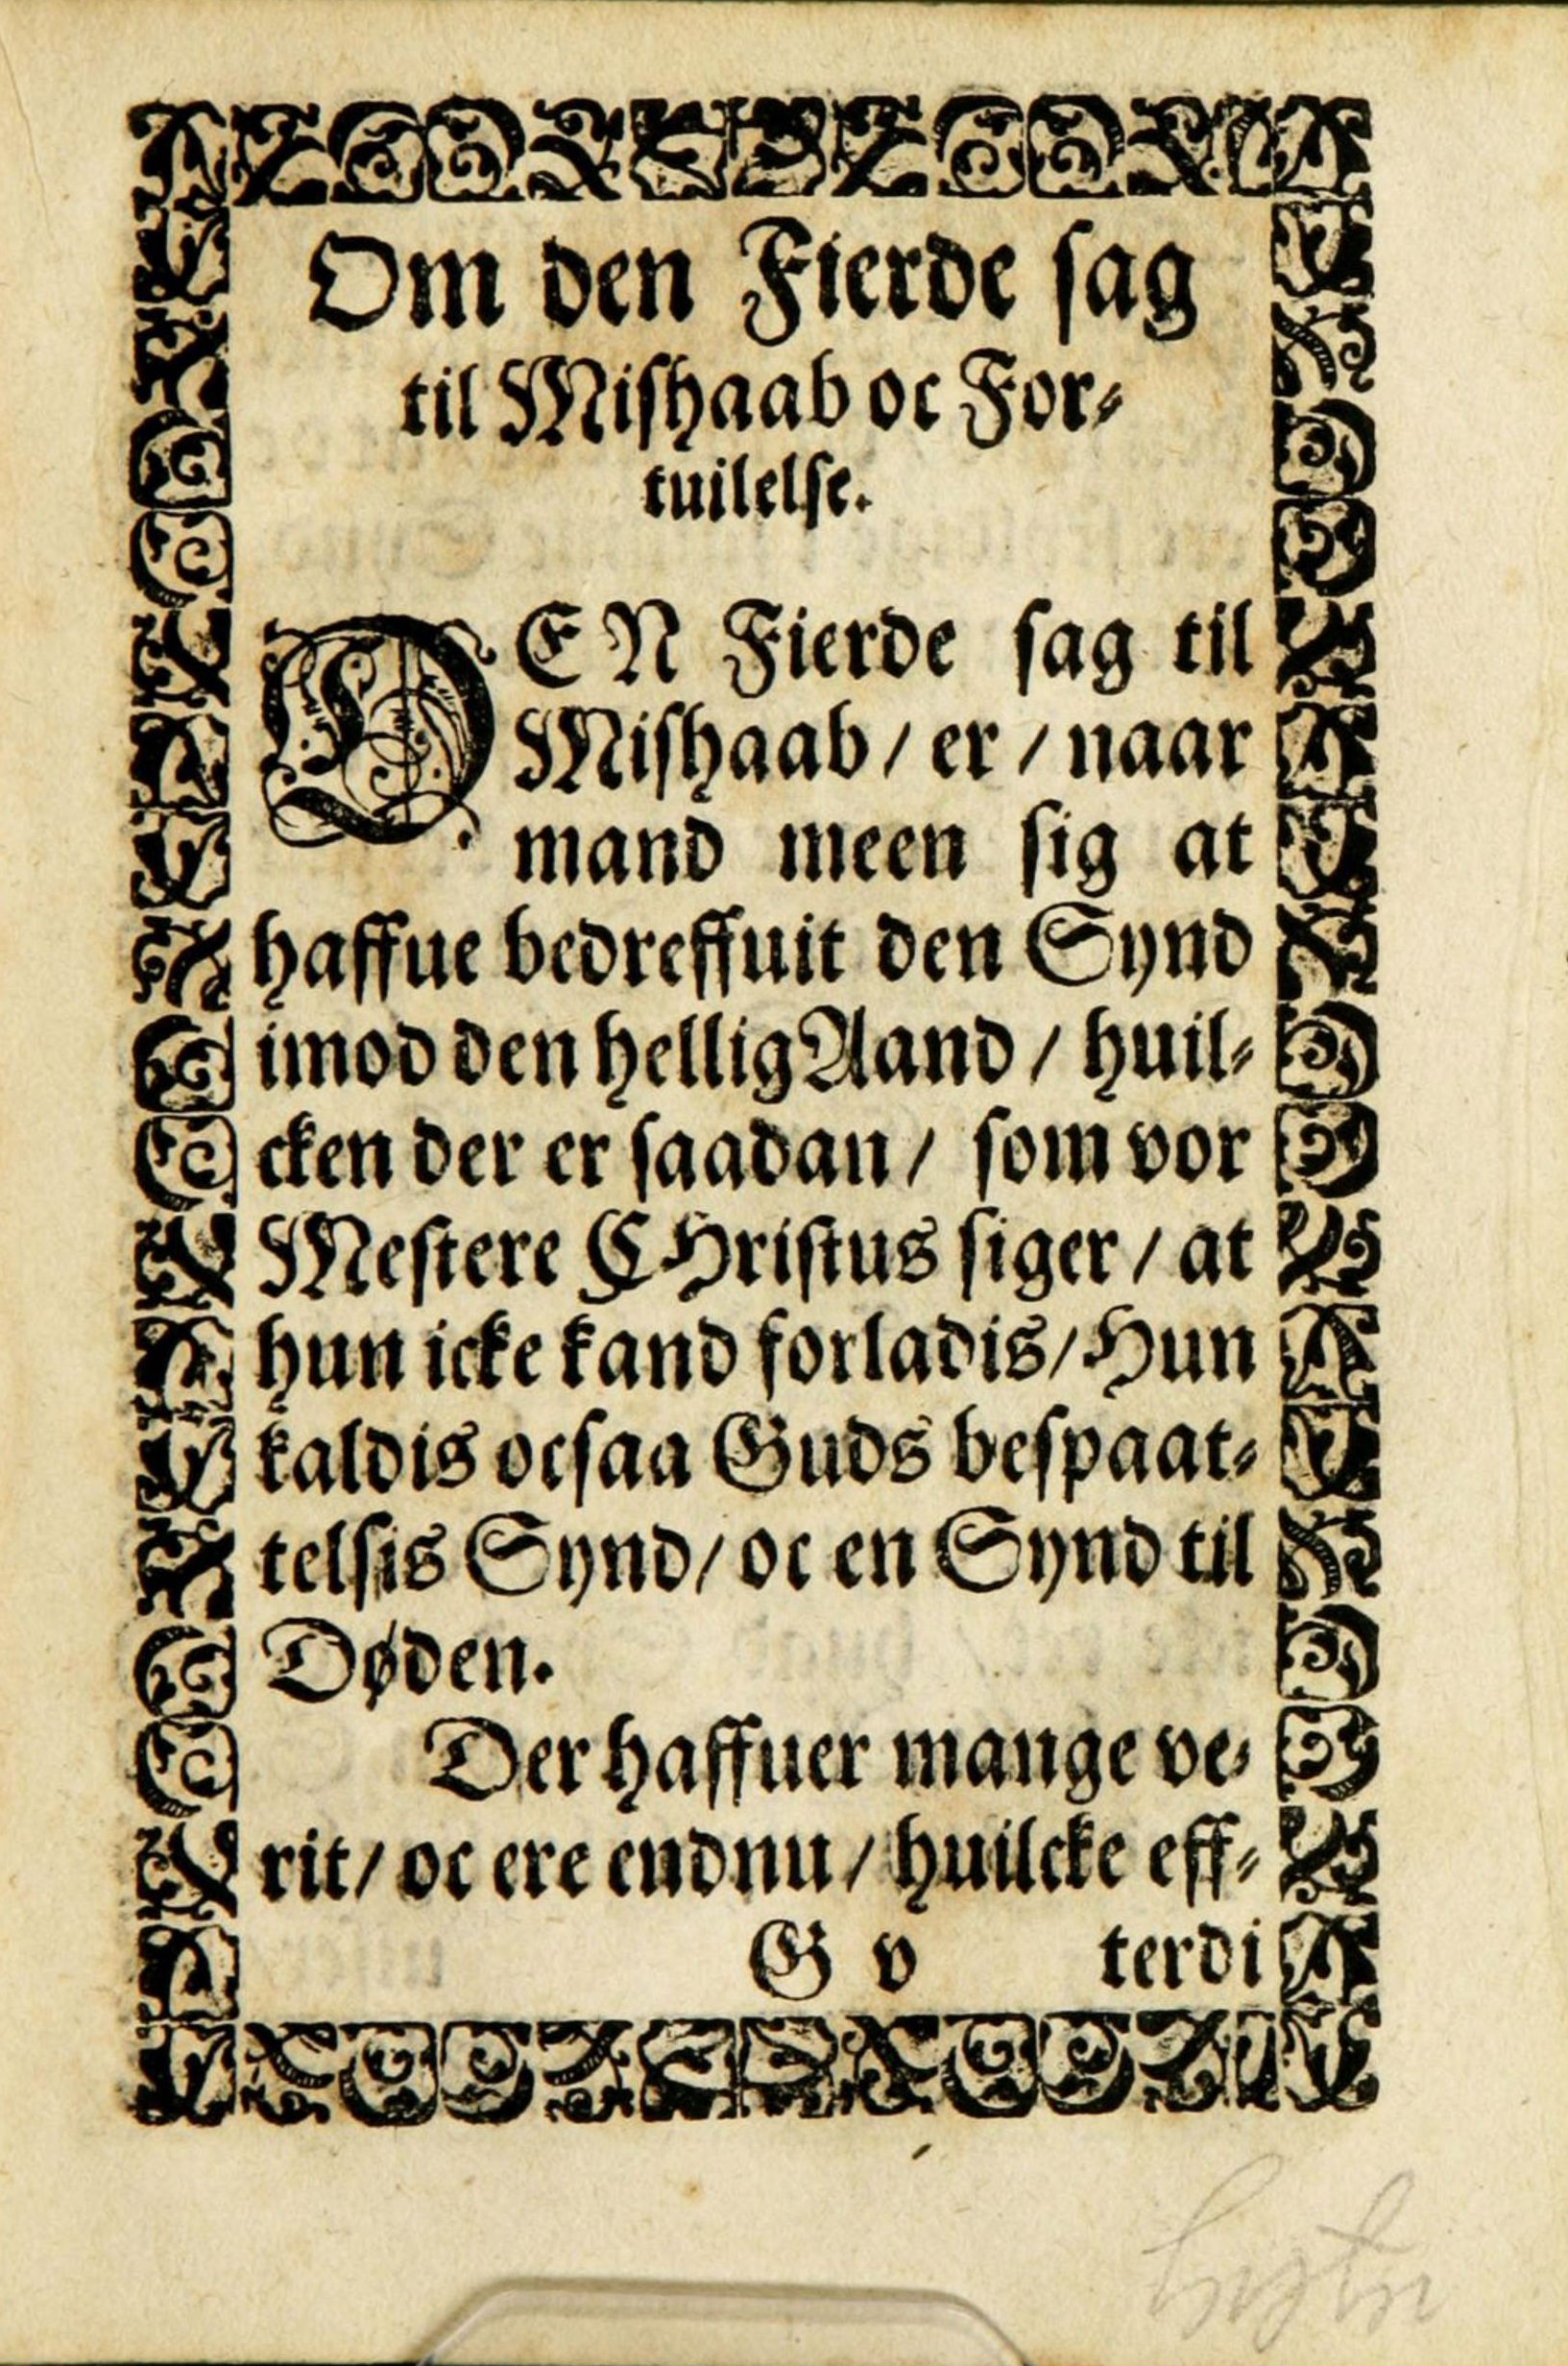 Om den Fierde sag
til Mishaab oc For-
tuilelse.
DEN Fierde sag til
Mishaab / er / naar
mand meen sig at
haffue bedreffuit den Synd
imod den hellig Aand / huil-
cken der er saadan / som vor
Mestere CHristus siger / at
hun icke kand forladis / Hun
kaldis ocsaa Guds bespaat-
telsis Synd / oc en Synd til
Døden.
Der haffuer mange ve-
rit / oc ere endnu / huilcke eff-
G v terdi